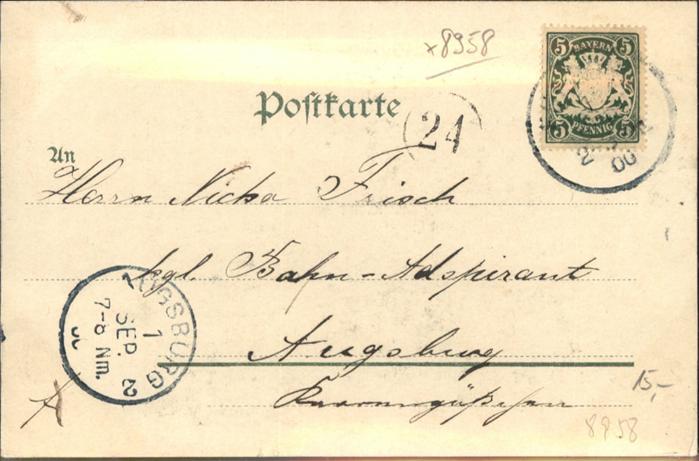 x8958
5 BAYERN 5
5 PFENNIG 5
Postkarte
24
An
Herrn Micha Frisch
kgl. Bahn-Adspirant
Augsburg
AUGSBURG 2
1 SEP.
7-8 Nm.
00
15,-
8958